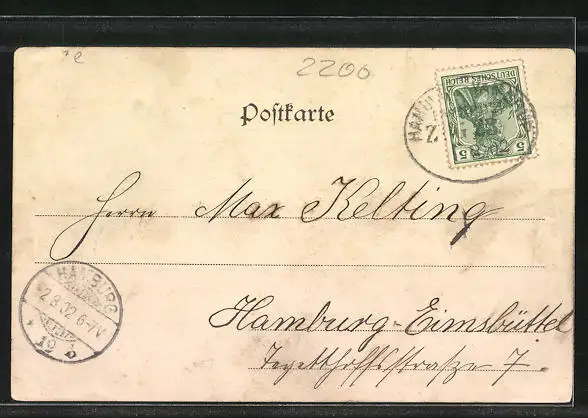 2200
Postkarte
DEUTSCHES REICH
5 5
Herrn Max Kelting
HAMBURG
2.8.02 6-7V
* 19 b
Hamburg-Eimsbüttel
Tegetthoffstrasze 7.